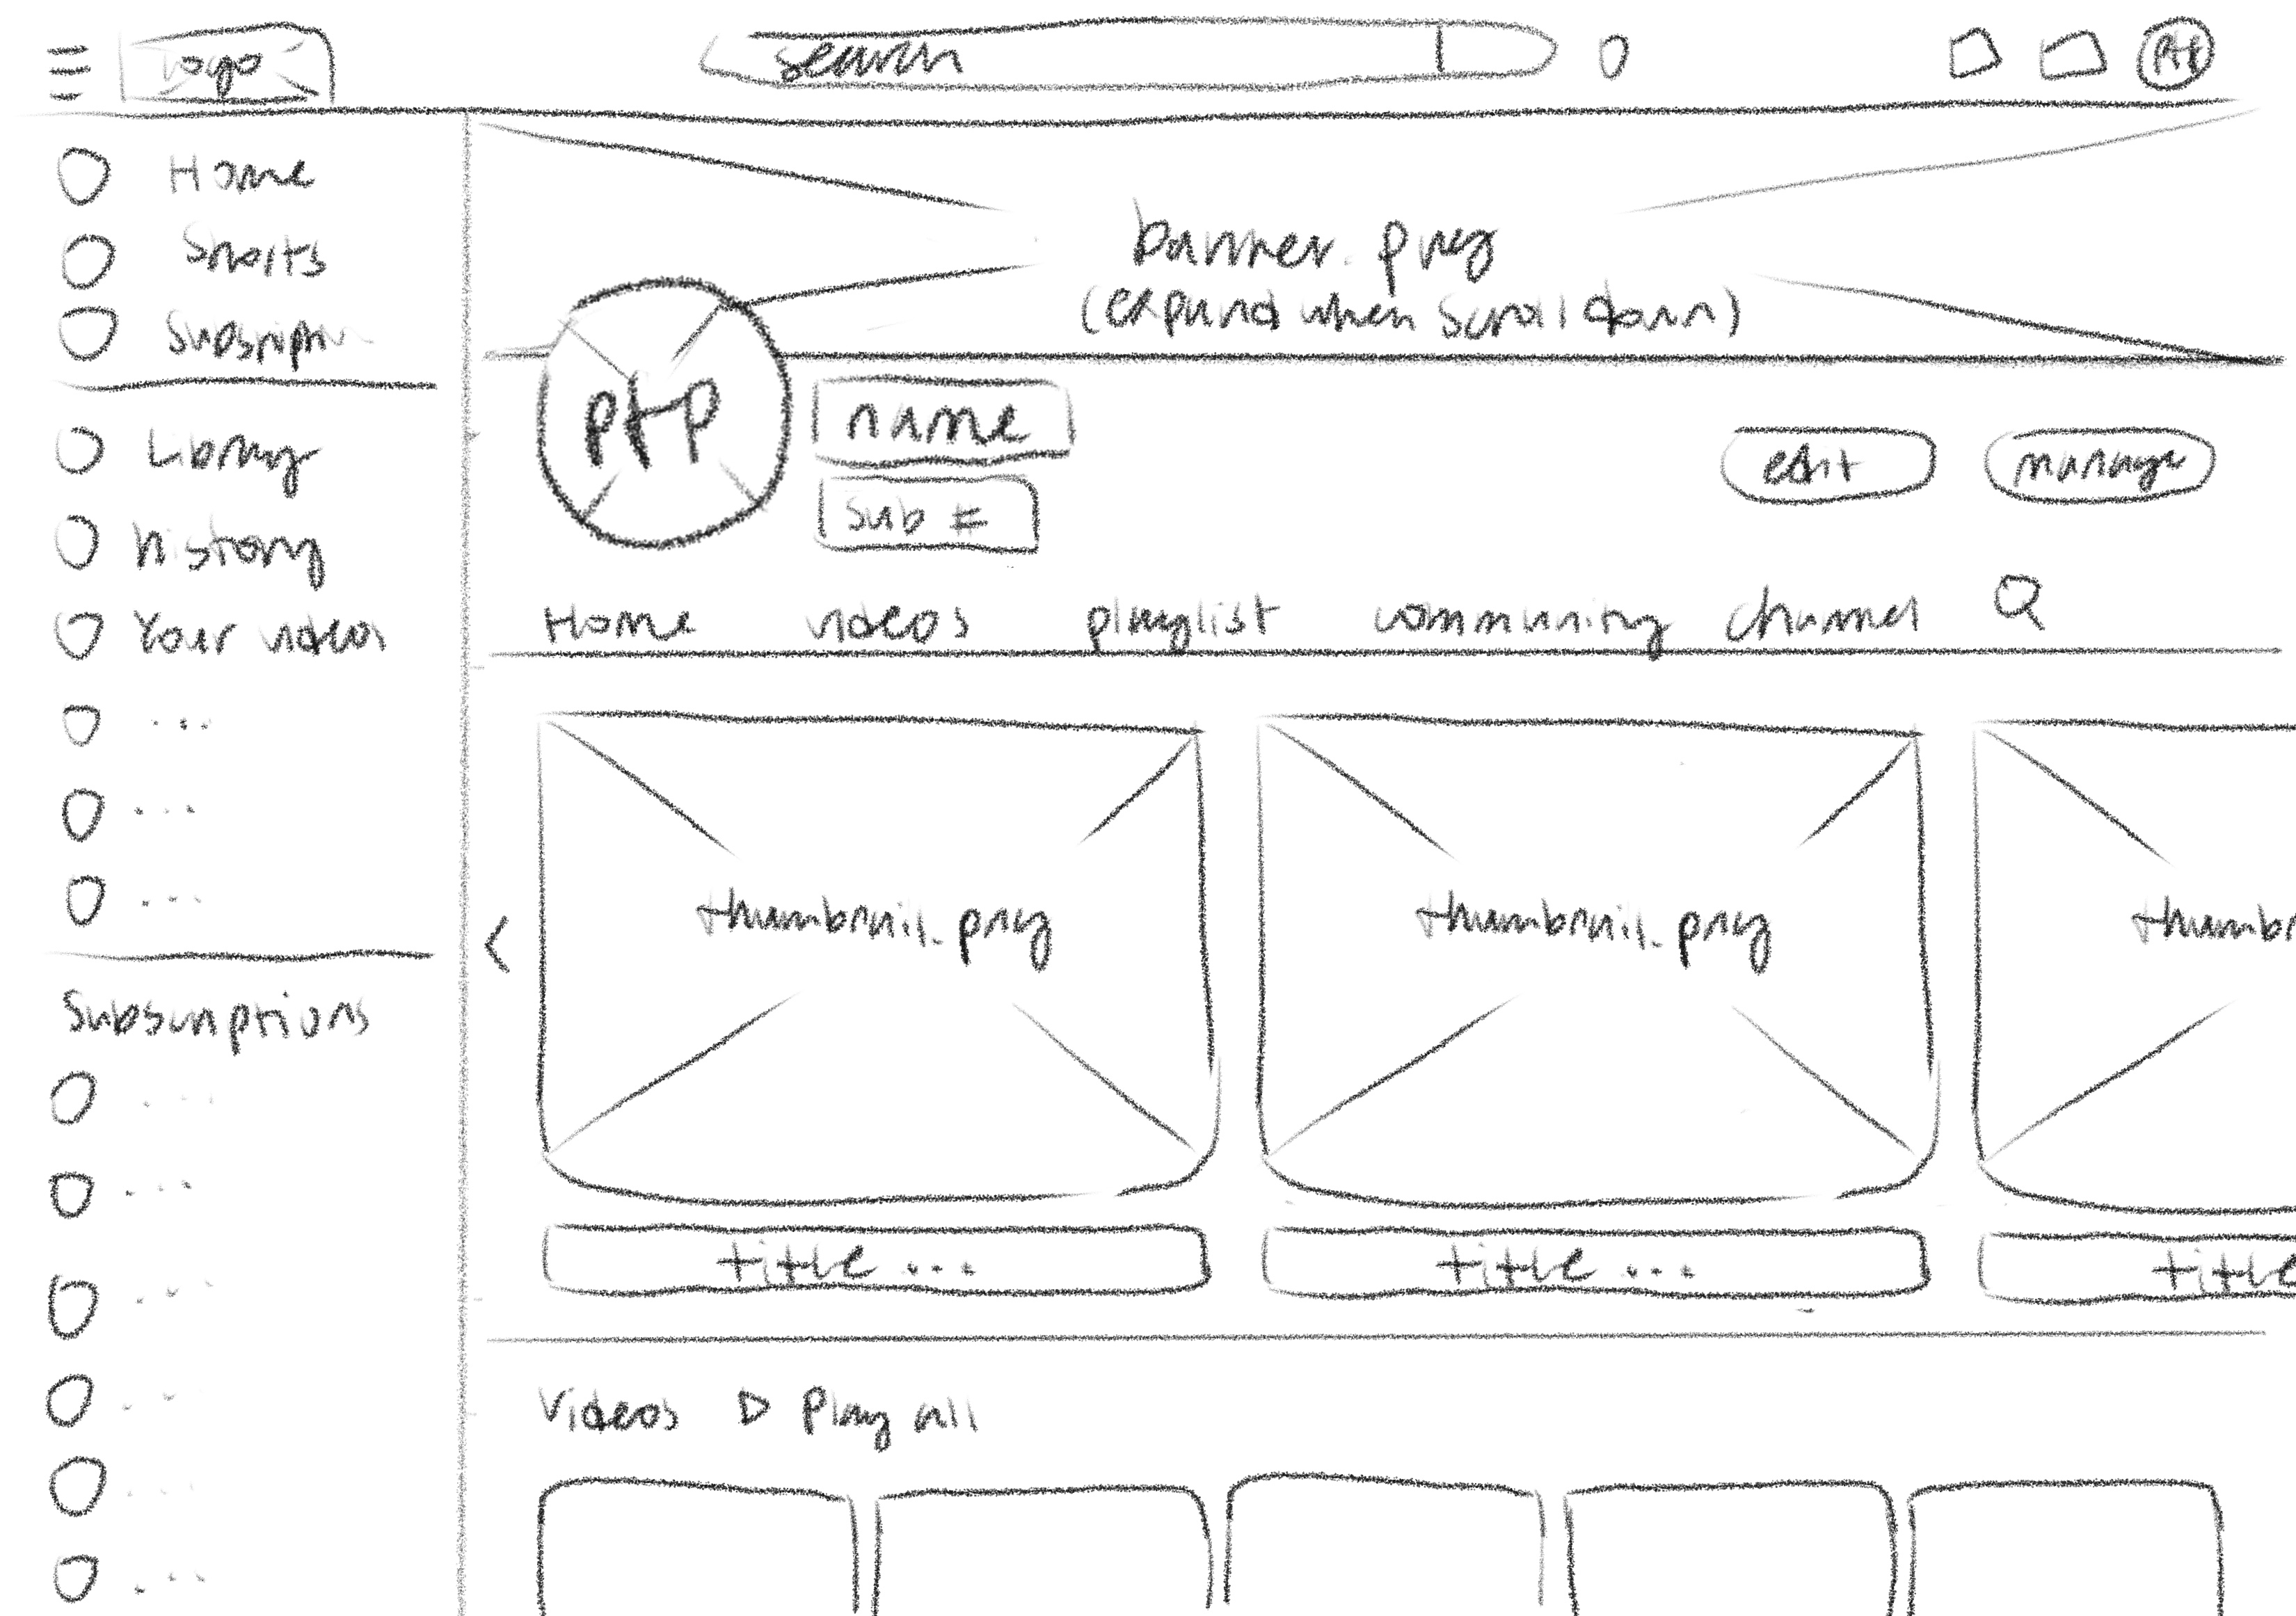 logo
search
pfp
Home
Shorts
Subscriptio
Library
history
Your videos
...
...
...
Subscriptions
...
...
...
...
...
...
banner.png
(expand when scroll down)
pfp
name
Sub #
edit
manage
Home videos playlist community channel
thumbnail.png thumbnail.png thumbn
title ... title ... title
Videos ▷ Play all